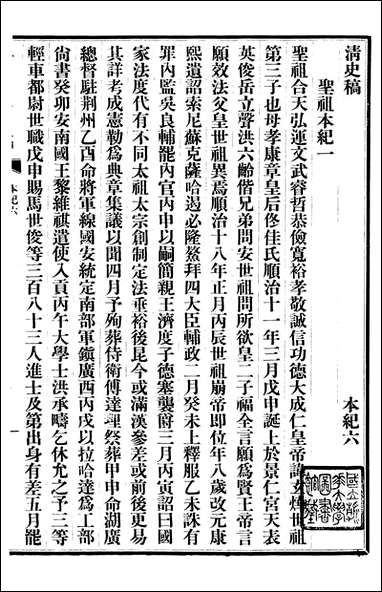 清史稿 本紀六
聖祖本紀一
聖祖合天弘運文武睿哲恭儉寬裕孝敬誠信功德大成仁皇帝諱玄燁世祖
第三子也母孝康章皇后佟佳氏順治十一年三月戊申誕上於景仁宮天表
英俊岳立聲洪六齡偕兄弟問安世祖問所欲皇二子福全言願爲賢王帝言
願效法父皇世祖異焉順治十八年正月丙辰世祖崩帝即位年八歲改元康
熙遺詔索尼蘇克薩哈遏必隆鰲拜四大臣輔政二月癸未上釋服乙未誅有
罪內監吳良輔罷內官丙申以嗣簡親王濟度子德塞襲爵三月丙寅詔曰國
家法度代有不同太祖太宗創制定法垂裕後昆今或滿漢參差或前後更易
其詳考成憲勒爲典章集議以聞四月予殉葬侍衛傅達理祭葬甲申命湖廣
總督駐荆州乙酉命將軍線國安統定南部軍鎭廣西丙戌以拉哈達爲工部
尙書癸卯安南國王黎維祺遣使入貢丙午大學士洪承疇乞休允之予三等
輕車都尉世職戊申賜馬世俊等三百八十三人進士及第出身有差五月罷
本紀六
一